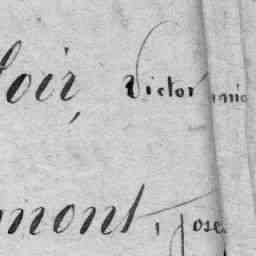 loir, Victor
mont, Jose